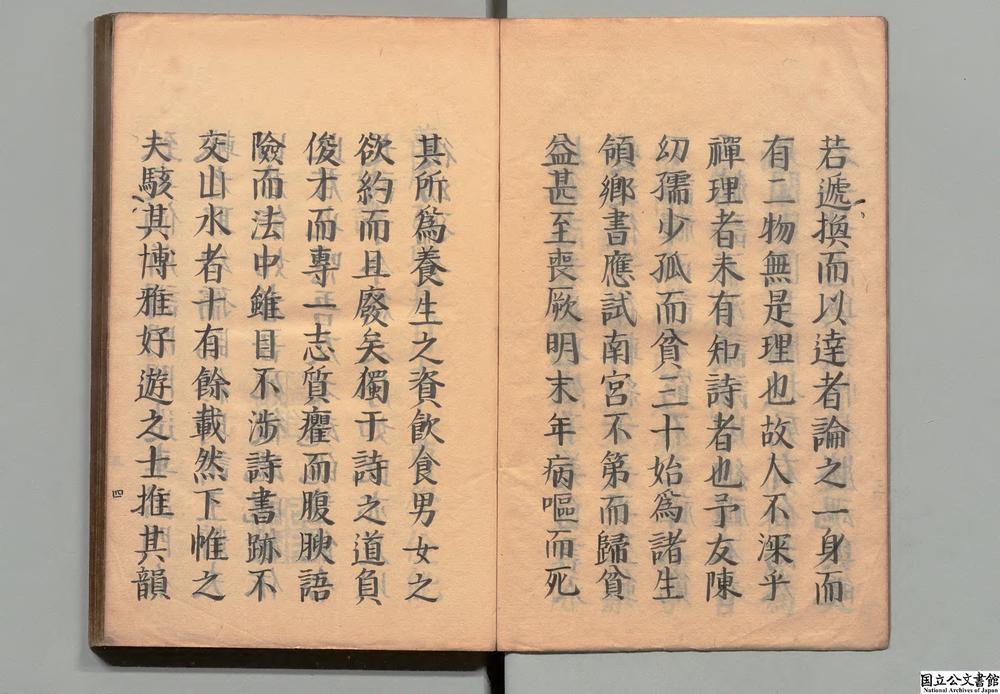 若遞換而以達者論之一身而
有二物無是理也故人不深乎
禪理者未有知詩者也予友陳
幻孺少孤而貧三十始爲諸生
領鄉書應試南宮不第而歸貧
益甚至喪厥明末年病嘔而死
其所爲養生之資飲食男女之
欲約而且廢矣獨于詩之道負
俊才而專一志質癯而腴語
險而法中雖目不涉詩書跡不
交山水者十有餘載然下帷之
夫駭其博雅好遊之士推其韻
四
国立公文書館
National Archives of Japan